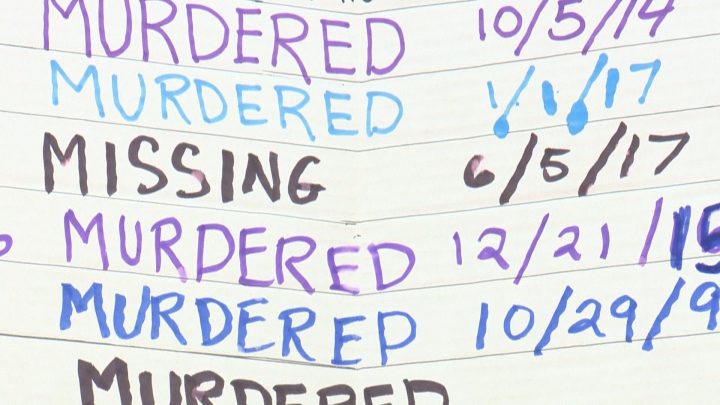 MURDERED 10/5/14
MURDERED 1/1/17
MISSING 6/5/17
MURDERED 12/21/15
MURDERED 10/29/9
MURDERED